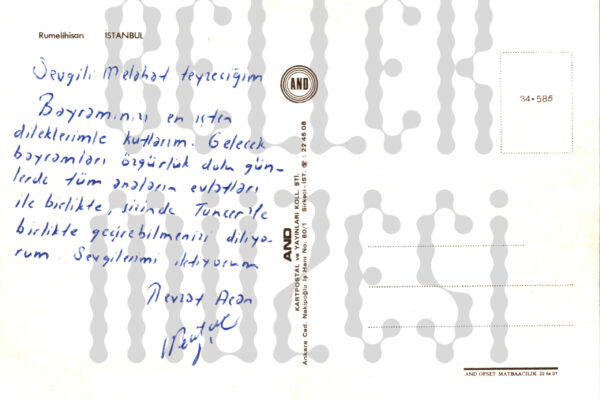 Rumelihisarı İSTANBUL
Sevgili Melâhat teyzeciğim
Bayramınızı en içten
dileklerimle kutlarım. Gelecek
bayramları özgürlük dolu gün-
lerde tüm anaların evlatları
ile birlikte, sizinde Tuncer'le
birlikte geçirebilmenizi diliyo-
rum. Sevgilerimi iletiyorum
Nevzat Acan
AND
AND
KARTPOSTAL ve YAYINLARI KOLL. ŞTİ.
Ankara Cad. Nakipoğlu İş Hanı No. 60/1 Sirkeci - İST. ☎ : 22 46 08
34-586
AND OFSET MATBAACILIK 22 64 07
BELLEK
MÜZESİ